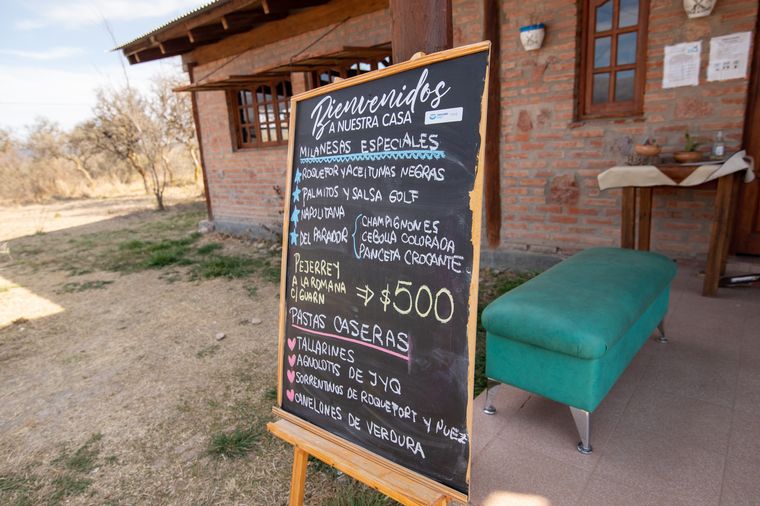 Bienvenidos
A NUESTRA CASA
MILANESAS ESPECIALES
ROQUEFOR Y ACEITUNAS NEGRAS
PALMITOS Y SALSA GOLF
NAPOLITANA
DEL PARADOR
CHAMPIGNONES
CEBOLLA COLORADA
PANCETA CROCANTE
PEJERREY
A LA ROMANA
C/GUARN
⇒ $500
PASTAS CASERAS
TALLARINES
AGNOLOTIS DE JYQ
SORRENTINOS DE ROQUEFORT Y NUEZ
CANELONES DE VERDURA